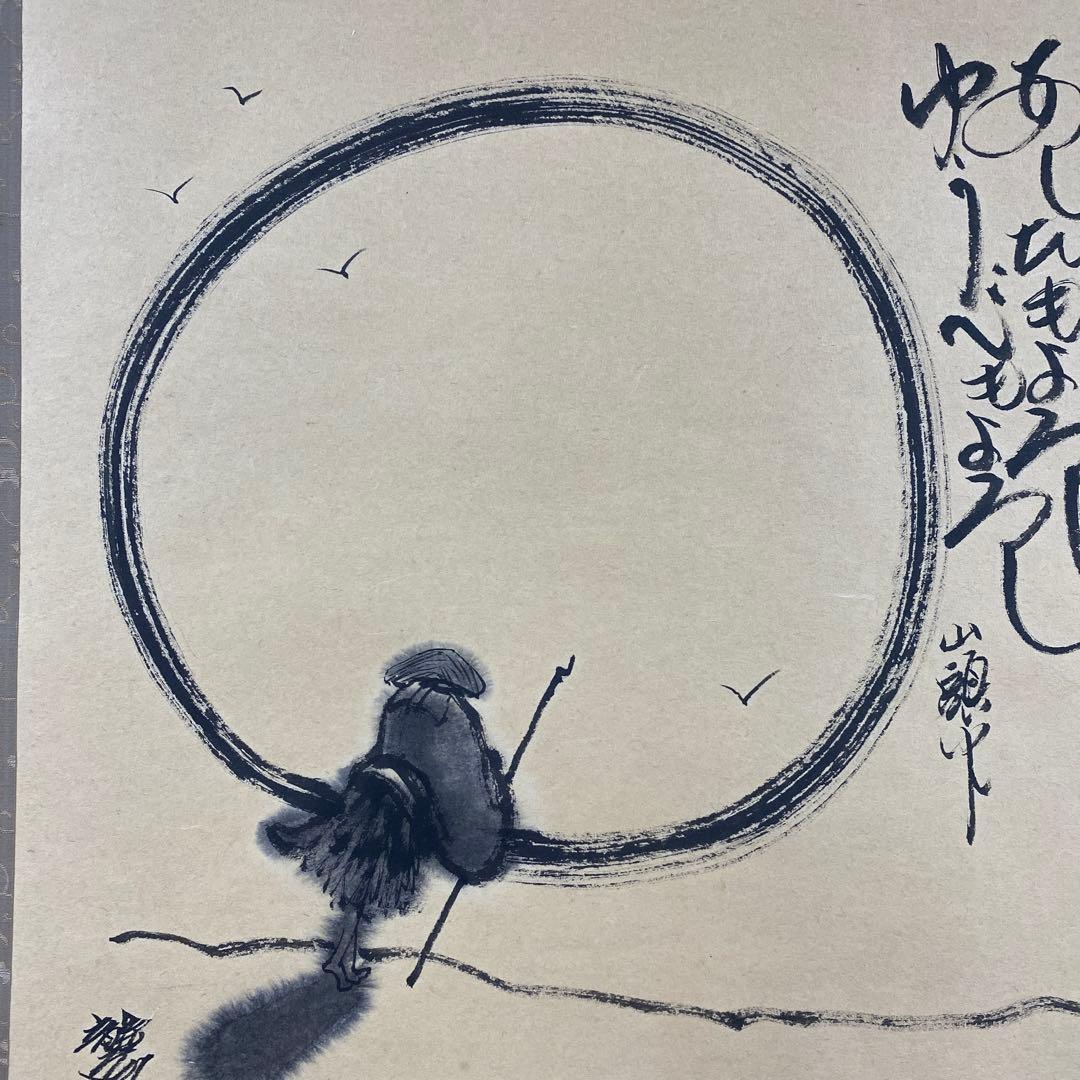 あしたもよろし
ゆうべもよろし
山頭火